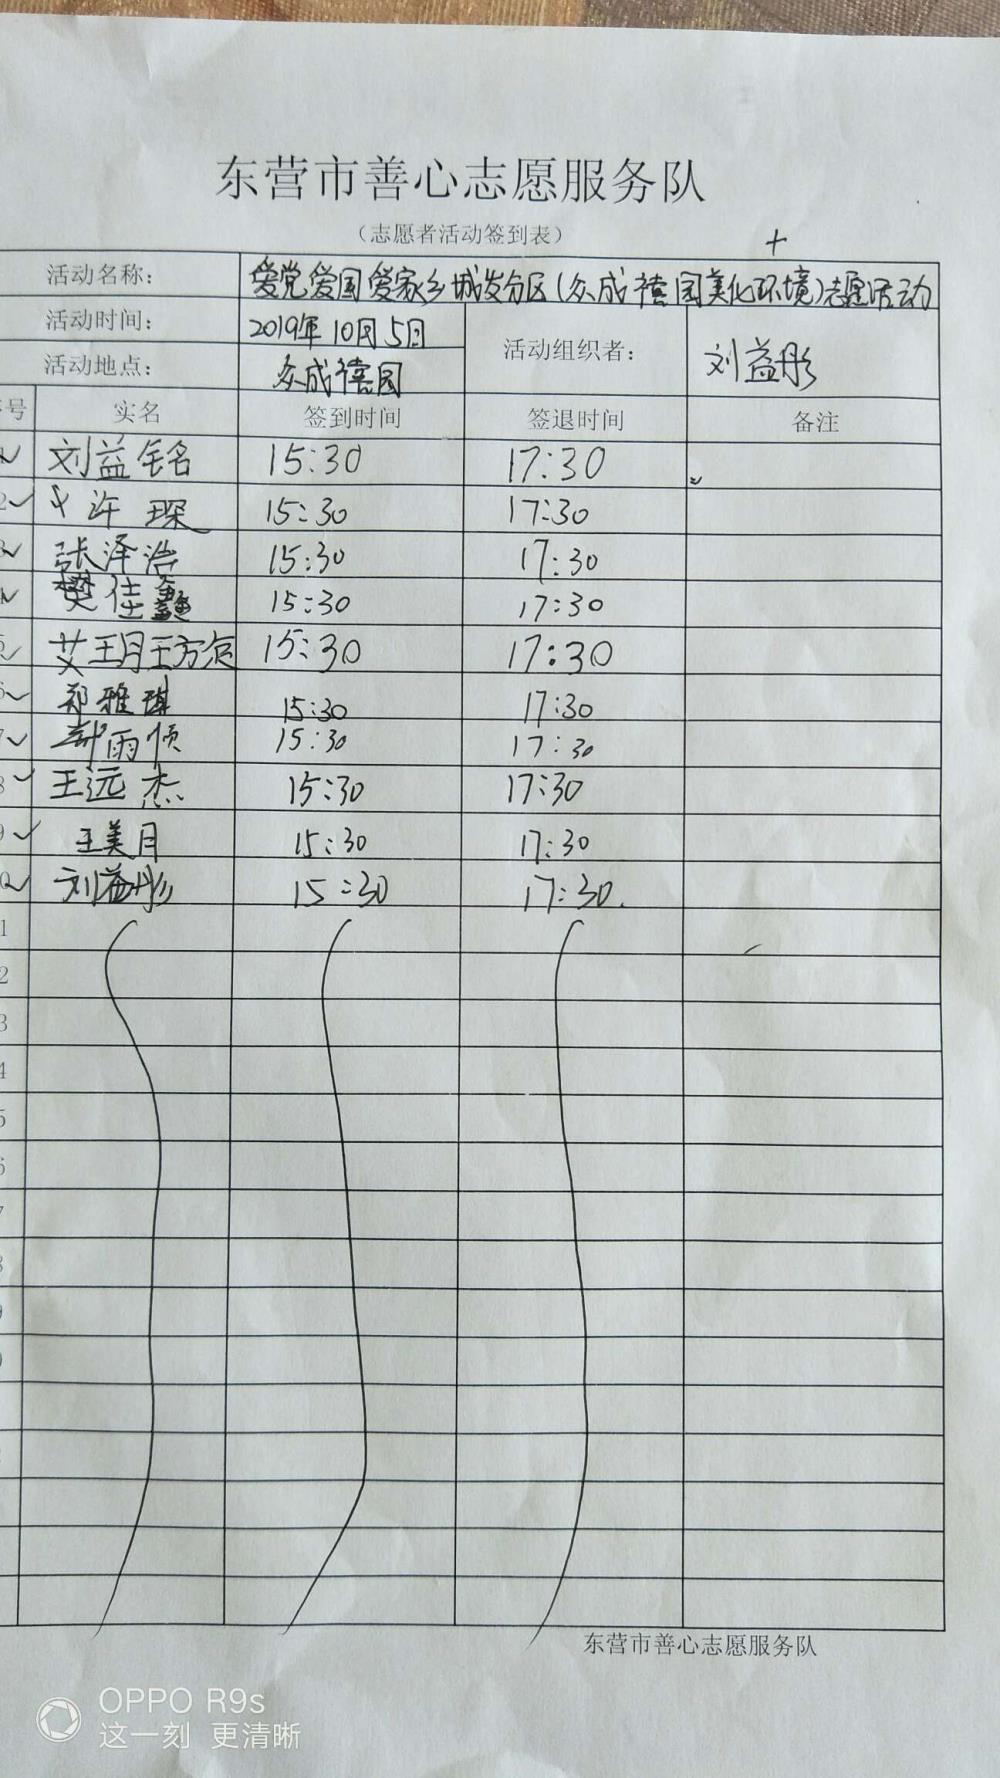 东营市善心志愿服务队
（志愿者活动签到表）
+
活动名称： 爱党爱国爱家乡城发分区（众成禧园美化环境）志愿活动
活动时间： 2019年10月5日 活动组织者： 刘益彤
活动地点： 众成禧园
号 实名 签到时间 签退时间 备注
刘益铭 15:30 17:30
2 许琛 15:30 17:30
3 张泽治 15:30 17:30
4 樊佳鑫 15:30 17:30
5 艾玥 15:30 17:30
6 郑雅琪 15:30 17:30
7 雨顺 15:30 17:30
8 王远杰 15:30 17:30
9 王美月 15:30 17:30
0 刘益彤 15:30 17:30.
1
2
3
4
5
6
7
8
9
0
东营市善心志愿服务队
OPPO R9s
这一刻 更清晰